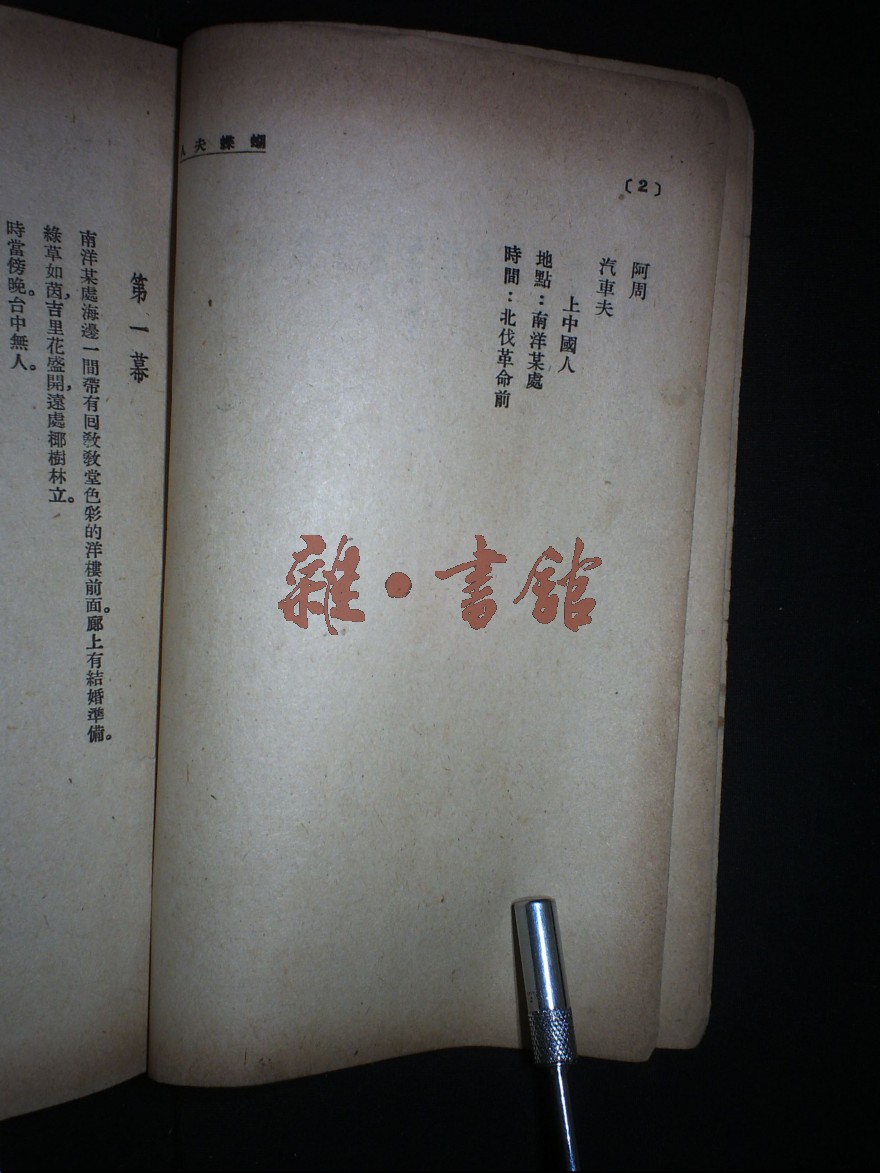 蝴蝶夫人
(2)
阿周
汽車夫
上中國人
地點：南洋某處
時間：北伐革命前
第一幕
南洋某處海邊一間帶有回敎敎堂色彩的洋樓前面。廊上有結婚準備。
綠草如茵，吉里花盛開，遠處椰樹林立。
時當傍晚。台中無人。
雜·書館